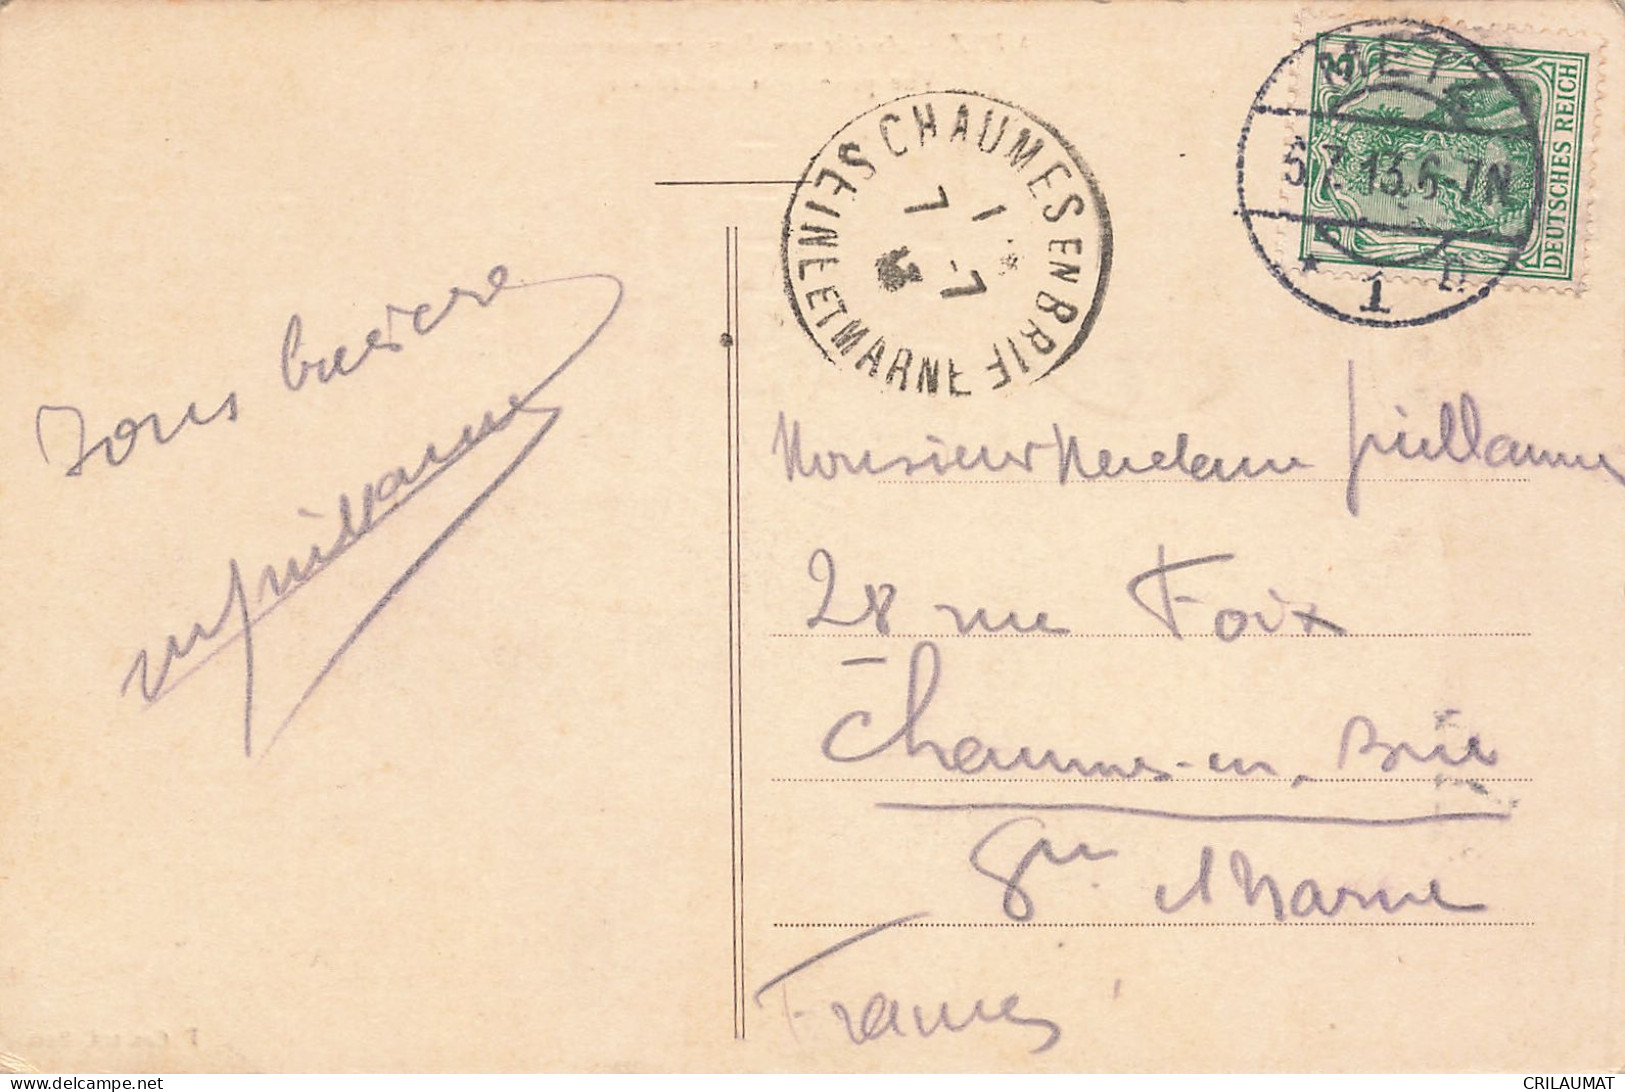 METZ
5.7.13.6-7N
* 1 n
DEUTSCHES REICH
CHAUMES EN BRIE
SEINE ET MARNE
1-7
7
13
Bons baisers
Guillaume
Monsieur Madame Guillaume
28 rue Foix
Chaumes-en-Brie
Sne Marne
France
CRILAUMAT